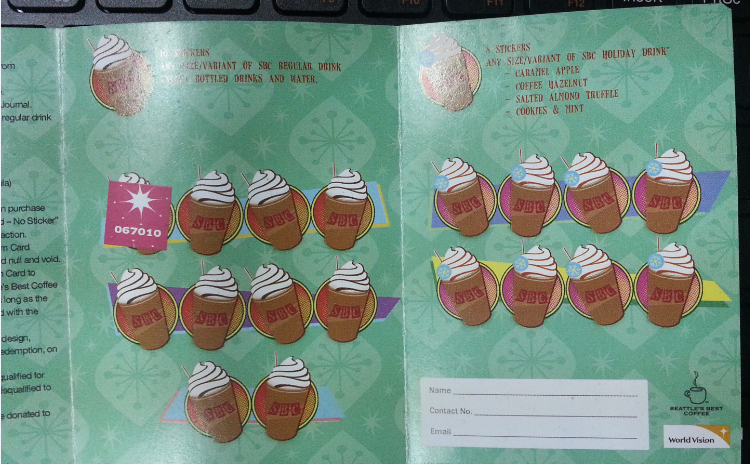 om
Journal.
regular drink
la)
n purchase
d – No Sticker"
action.
m Card
d null and void.
n Card to
e's Best Coffee
long as the
d with the
design,
edemption, on
qualified for
squalified to
e donated to
STICKERS
SIZE/VARIANT OF SBC REGULAR DRINK
BOTTLED DRINKS AND WATER.
067010
SBC
SBC
SBC
SBC
SBC
SBC
SBC
SBC
SBC
8 STICKERS
ANY SIZE/VARIANT OF SBC HOLIDAY DRINK*
- CARAMEL APPLE
- COFFEE HAZELNUT
- SALTED ALMOND TRUFFLE
- COOKIES & MINT
SBC
SBC
SBC
SBC
SBC
SBC
SBC
SBC
Name
Contact No.
Email
SEATTLE'S BEST
COFFEE
World Vision
F10
F11
F12
Insert